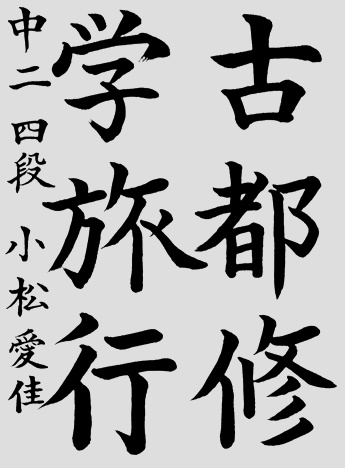 古都修
学旅行
中二 四段 小松愛佳